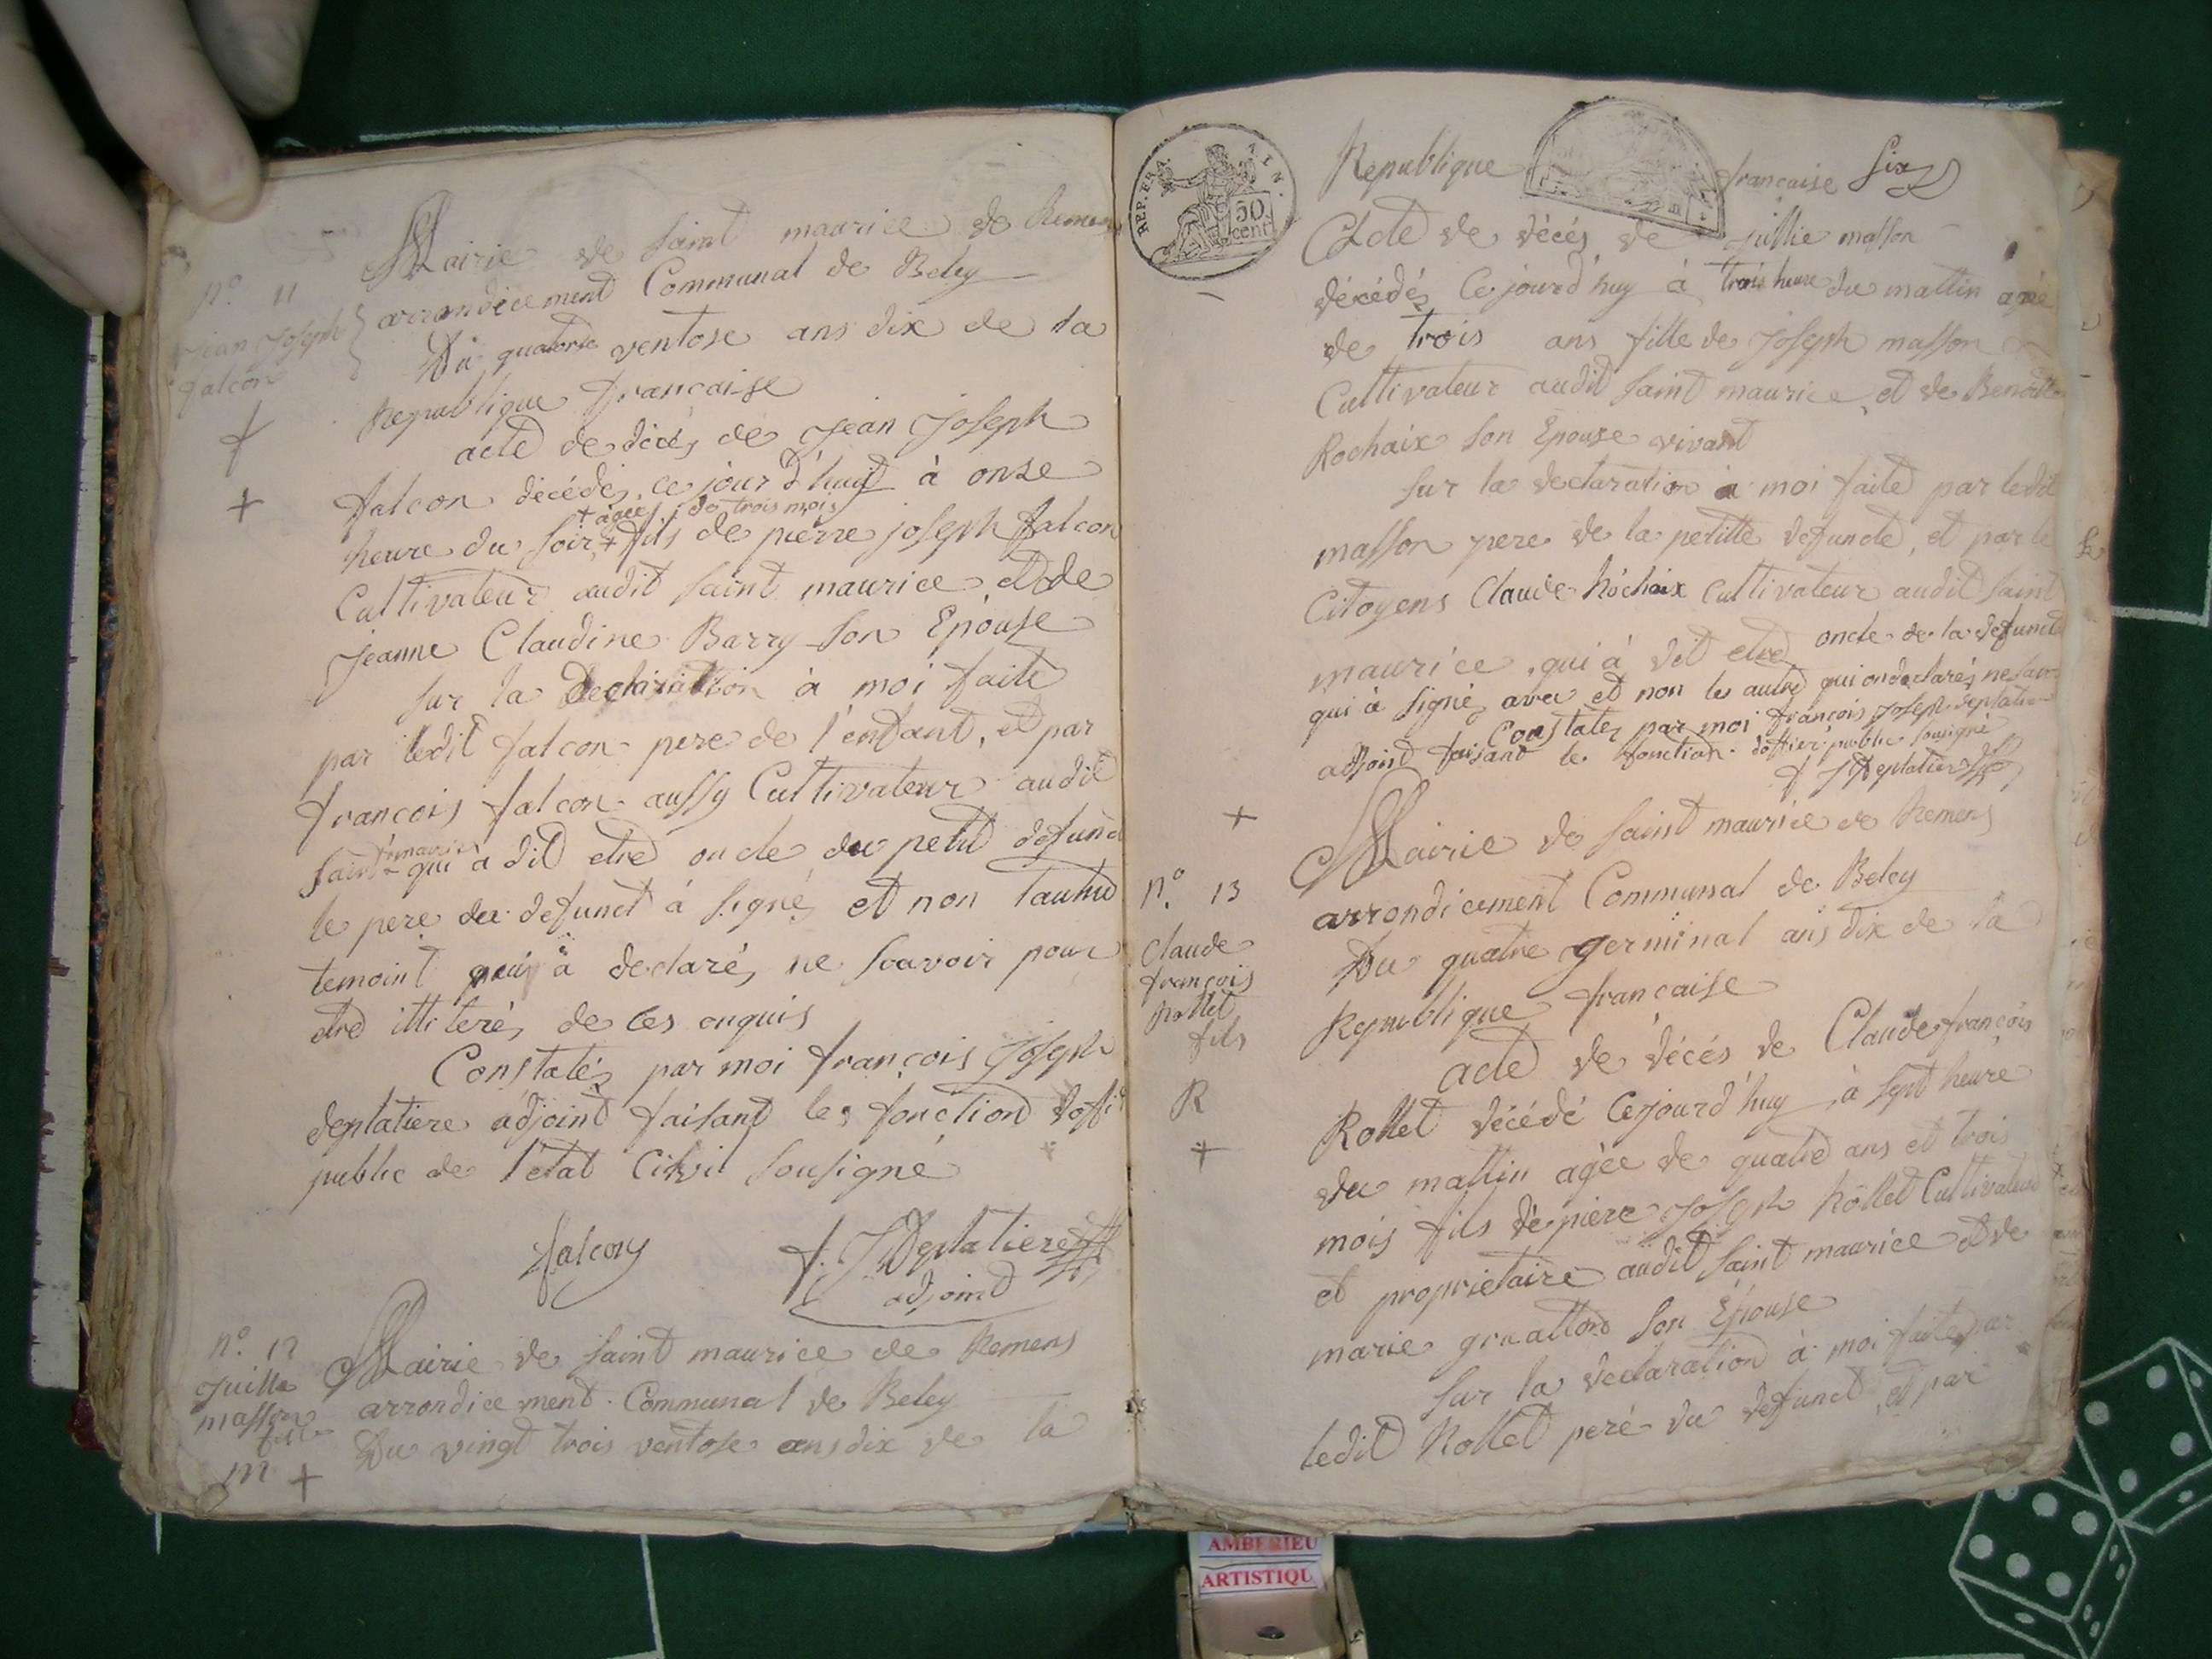 Mairie de saint maurice de Remens
n.° 11
arrondicement Communal de Beley
jean joseph
falcon
Du quatorse ventose ans dix de la
Republique francaise
acte de décés de jean joseph
falcon décédés ce jour d'huy à onze
+ agée de trois mois
heure du soir + fils de pierre joseph falcon
Cultivateur audit saint maurice et de
jeanne Claudine Barry son Epouse
sur la Declaration à moi faite
par ledit falcon pere de l'enfant, et par
francois falcon aussy Cultivateur audit
maurice
saint qui a dit etre oncle du petit defunct
le pere du defunct á signé et non lautre
temoint qui à declarés ne scavoir pour
etre illiterés de ces enquis
Constatés par moi françois joseph
deplatiere adjoint faisant les fonction doffi
public de l'etat Civil sousigné
falcon
f. J Deplatiere
adjoint
n.° 12
juillie
masson
fille
m +
Mairie de saint maurice de Remens
arrondicement Communal de Beley
Du vingt trois ventose ans dix de la
REP. FRA. 50 cent
Republique francaise six
Acte de décés de jullie masson
décédés Cejourd'huy á trois heure du mattin agée
de trois ans fille de joseph masson
Cultivateur audit saint maurice et de Benoite
Rochaix son Epouse vivant
sur la declaration à moi faite par ledit
masson pere de la petitte defuncte, et par le
Citoyens Claude Rochaix Cultivateur audit saint
maurice, qui à dit etre oncle de la defuncte
qui à signé avec et non les autre qui on declarés ne
Constatés par moi françois joseph deplatiere
adjoint faisant les fonction doffier public sousigné
f J Deplatiere
+
Mairie de saint maurice de Remens
n.° 13
arrondicement Communal de Beley
claude
françois
Rollet
fils
R
+
Du quatre germinal ans dix de la
Republique francaise
acte de décés de Claude françois
Rollet décédé Cejourd'huy à sept heure
du mattin agée de quatre ans et trois
mois fils de piere joseph Rollet Cultivateur
et proprietaire audit saint maurice et de
marie gruatton son Epouse
sur la declaration à moi faite par
ledit Rollet peré du defunct et par
AMBERIEU
ARTISTIQU